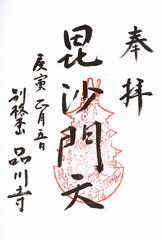 奉拝
毘沙門天
庚寅 正月五日
別格本山 品川寺